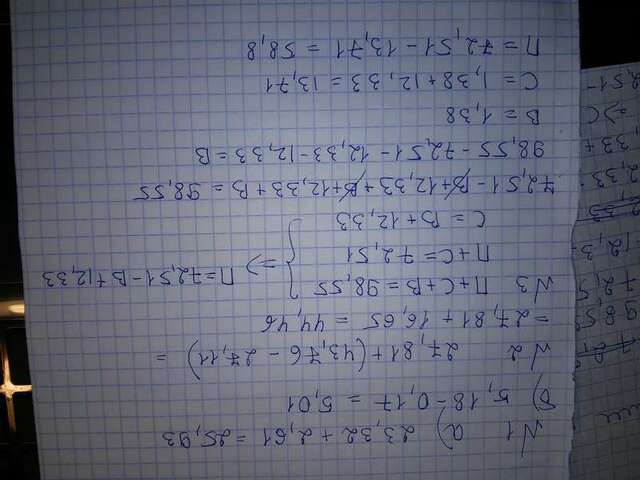 №1 а) 23,32 + 2,61 = 25,93
б) 5,18 - 0,17 = 5,01
№2 27,81 + (43,76 - 27,11) =
= 27,81 + 16,65 = 44,46
№3 П+С+В = 98,55
П+С = 72,51
С = В+12,33
=> П=72,51-В+12,33
72,51 - В+12,33 + В+12,33 + В = 98,55
98,55 - 72,51 - 12,33 - 12,33 = В
В = 1,38
С = 1,38 + 12,33 = 13,71
П = 72,51 - 13,71 = 58,8